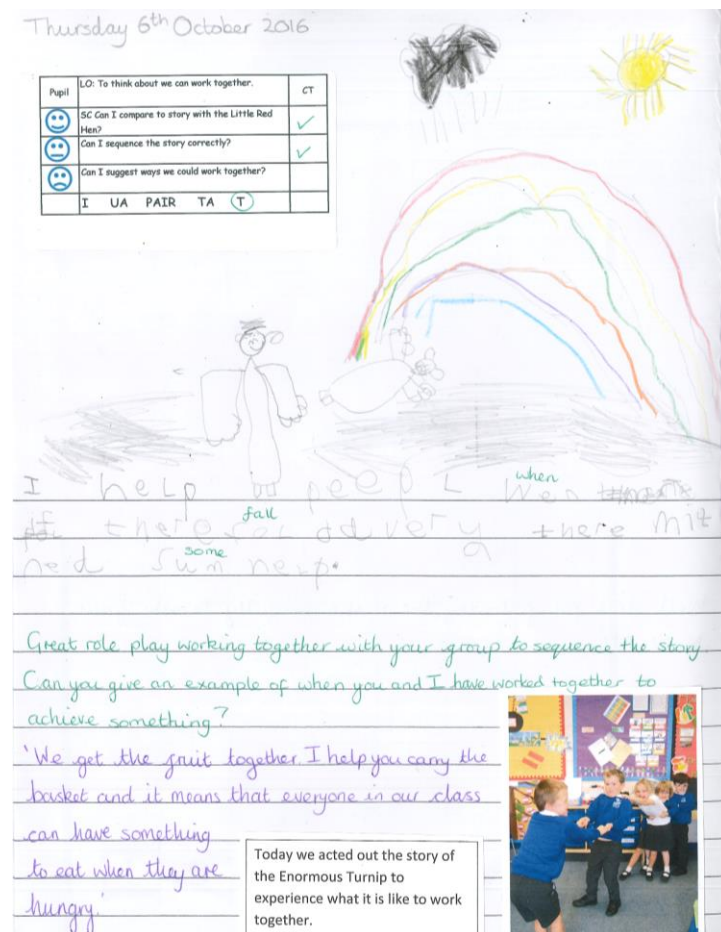 Thursday 6th October 2016
Pupil
LO: To think about we can work together.
CT
SC Can I compare to story with the Little Red
Hen?
Can I sequence the story correctly?
Can I suggest ways we could work together?
I UA PAIR TA T
when
I help peepl wen
fall
there mit
some
ned sum help.
Great role play working together with your group to sequence the story.
Can you give an example of when you and I have worked together to
achieve something?
'We get the fruit together. I help you carry the
basket and it means that everyone in our class
can have something
to eat when they are
hungry.'
Today we acted out the story of
the Enormous Turnip to
experience what it is like to work
together.